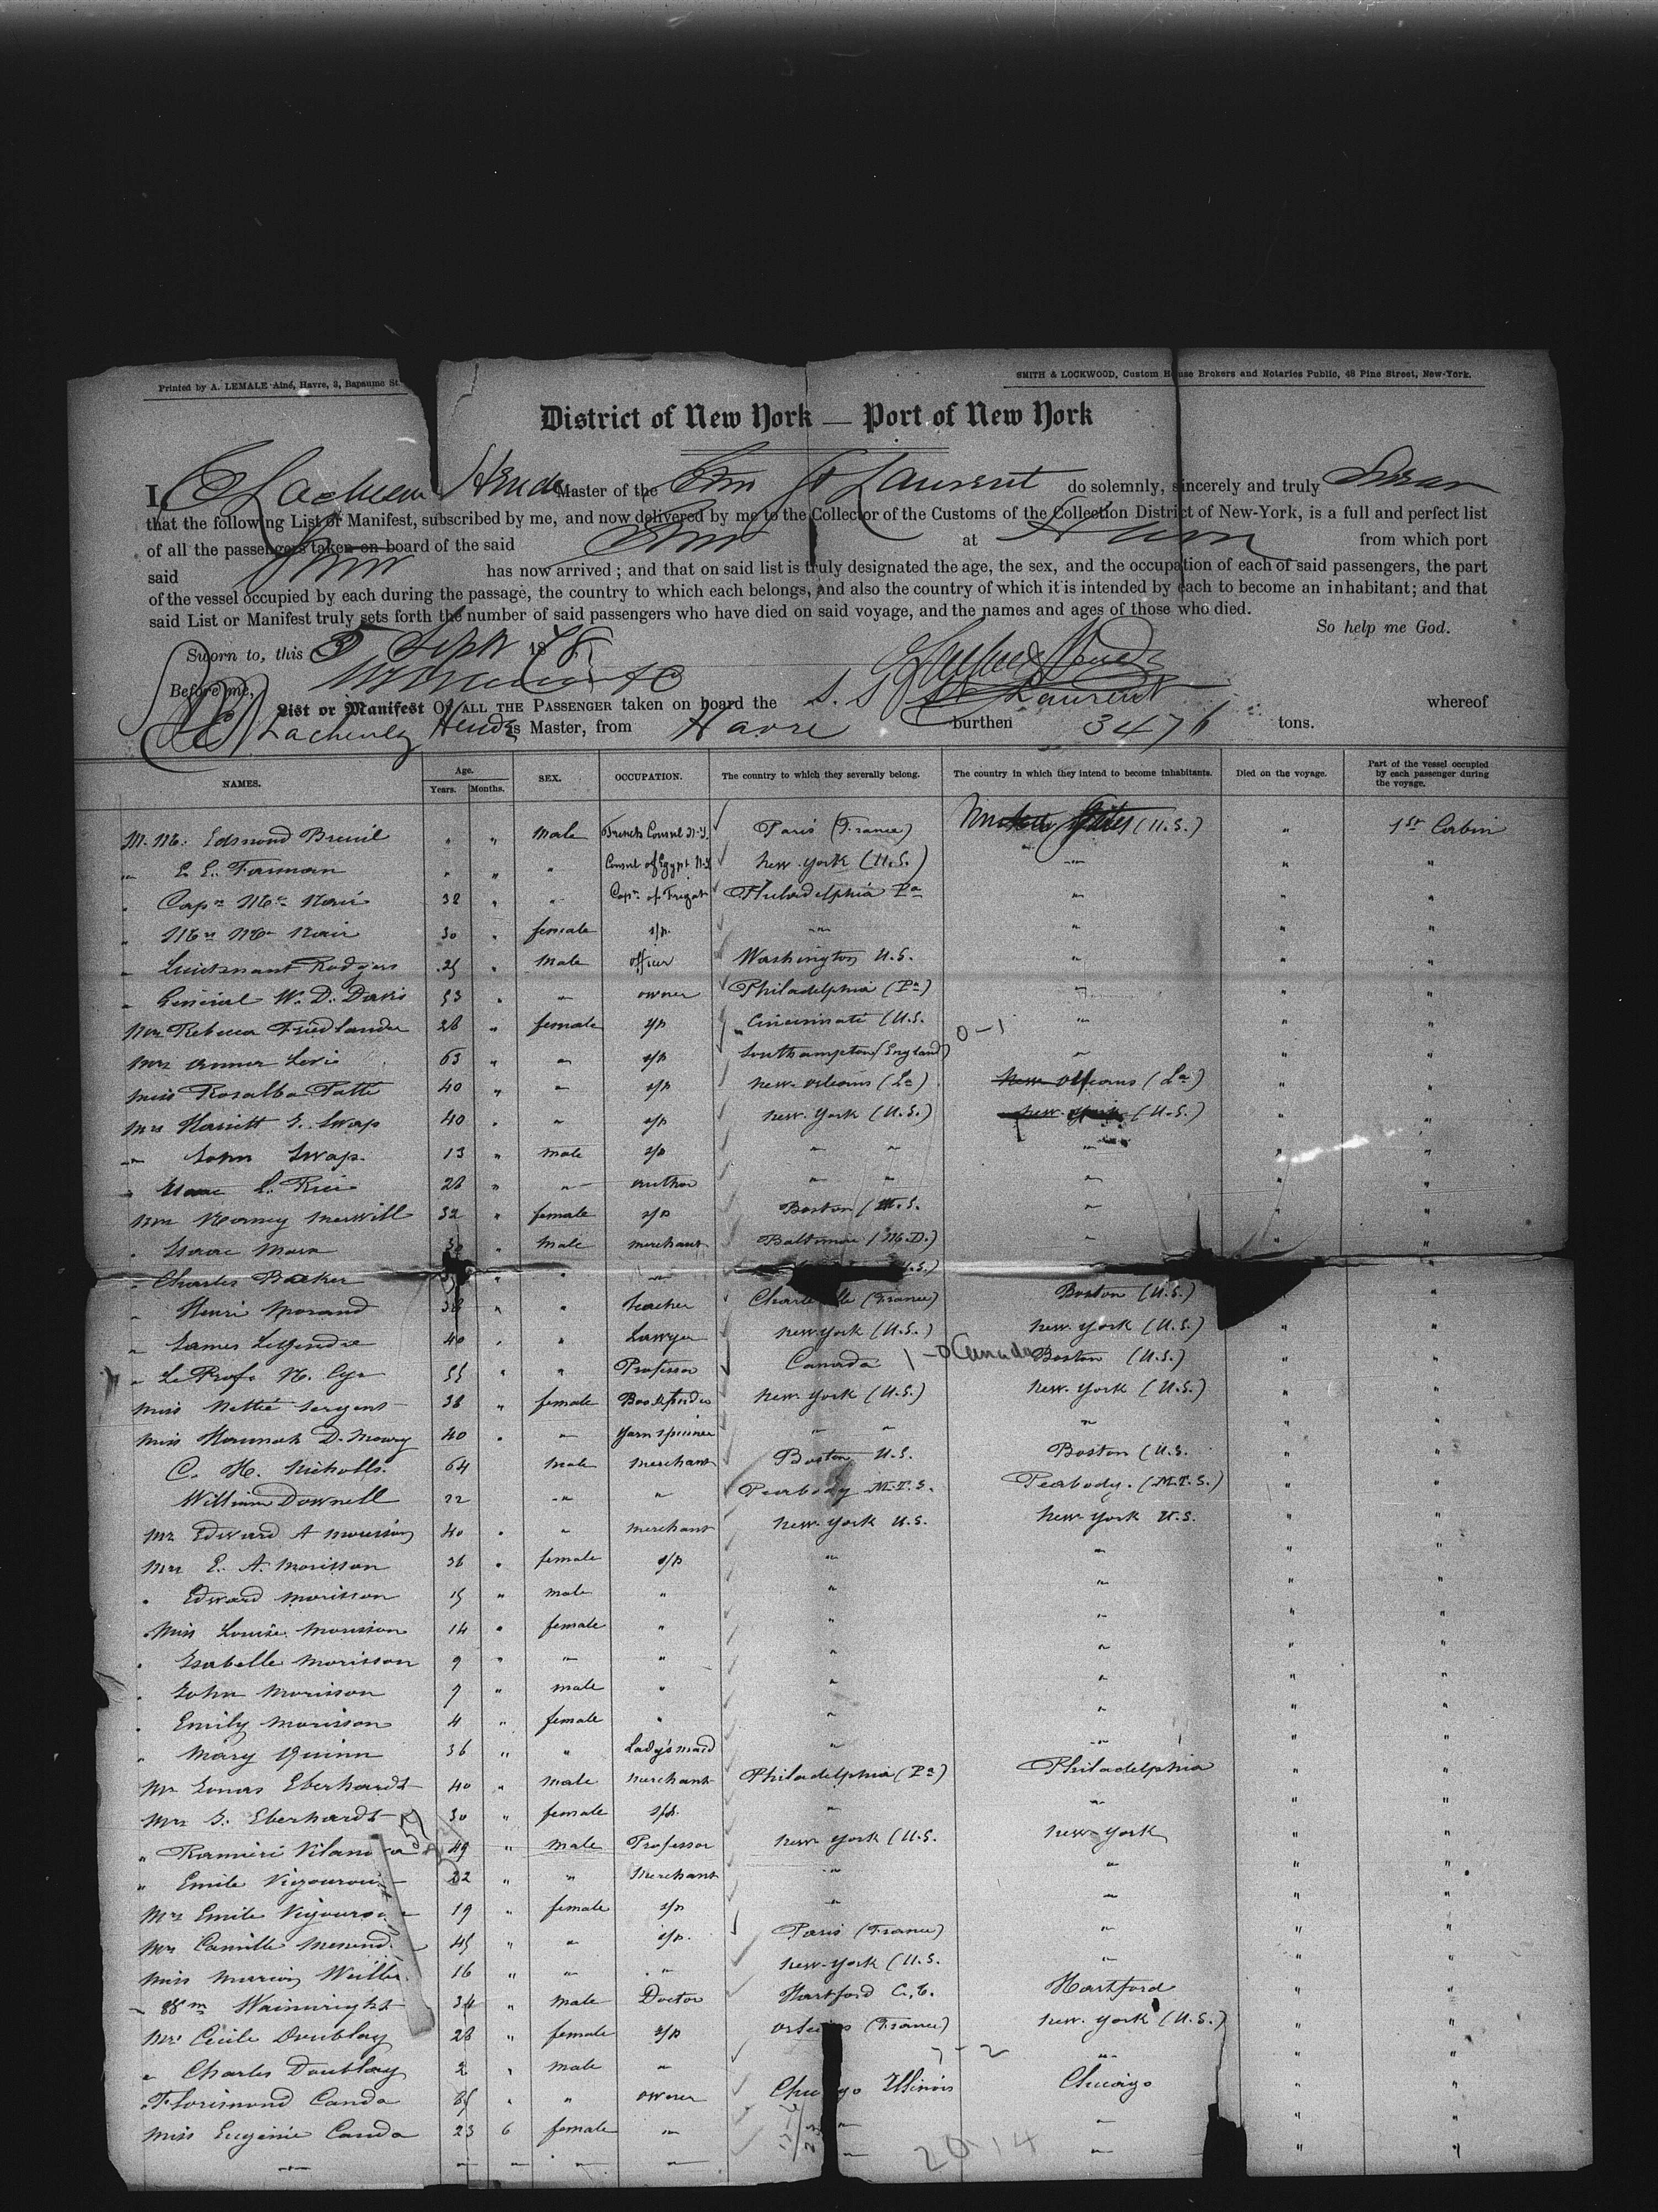 Printed by A. LEMALE Aîné, Havre, 3, Bapaume St
SMITH & LOCKWOOD, Custom House Brokers and Notaries Public, 48 Pine Street, New-York.
District of New York — Port of New York
I, Master of the St Laurent do solemnly, sincerely and truly Swear
that the following List or Manifest, subscribed by me, and now delivered by me to the Collector of the Customs of the Collection District of New-York, is a full and perfect list
of all the passengers taken on board of the said at from which port
said has now arrived; and that on said list is truly designated the age, the sex, and the occupation of each of said passengers, the part
of the vessel occupied by each during the passage, the country to which each belongs, and also the country of which it is intended by each to become an inhabitant; and that
said List or Manifest truly sets forth the number of said passengers who have died on said voyage, and the names and ages of those who died.
So help me God.
Sworn to, this 5 Sept 1878
Before me,
List or Manifest OF ALL THE PASSENGER taken on board the S. S. St Laurent whereof
is Master, from Havre burthen 3476 tons.
NAMES. Age. Years. Months. SEX. OCCUPATION. The country to which they severally belong. The country in which they intend to become inhabitants. Died on the voyage. Part of the vessel occupied by each passenger during the voyage.
M. Mr. Edmond Breuil " " Male French Consul N.Y. Paris (France) (U.S.) " 1st Cabin
" E. E. Farman " " " Consul of Egypt N.Y. New York (U.S.) " " "
" Capn Mc Nair 38 " " Capn of Frigate Philadelphia Pa " " "
" Mrs Mc Nair 30 " female s/p " " " "
" Lieutenant Rodgers 25 " Male officer Washington U.S. " " "
" General W. D. Davis 53 " " owner Philadelphia (Pa) " " "
Mrs Rebecca Friedlander 28 " female s/p Cincinnati (U.S. " " "
Mrs Levi 63 " " s/p Southampton (England) 0-1 " " "
Miss Rosalba 40 " " s/p New-Orleans (La) New Orleans (La) " "
Mrs Harriett E. Swap 40 " " s/p New-York (U.S.) New-York (U.S.) " "
" John Swap 13 " Male s/p " " " " "
" Isaac L. Rice 28 " " author " " " " "
Mrs Merwill 32 " female s/p Boston (U.S. " " "
" Isaac " Male merchant Baltimore (M.D.) " " "
" Charles Backer " " " U.S.) "
" Henri Morand 38 " " teacher (France) Boston (U.S.) " "
" James Legendre 40 " " Lawyer New York (U.S.) New-York (U.S.) " "
" Le Profr N. Cyr 55 " " Professor Canada 1-0 Canada Boston (U.S.) " "
Miss Nettie Sergent 38 " female New-York (U.S.) New-York (U.S.) " "
Miss Hannah D. Mowry 40 " " Yarn " " " " "
C. H. Nicholls 64 Male Merchant Boston U.S. Boston (U.S. " "
William Downell 22 " " Peabody M.T.S. Peabody. (M.T.S.) " "
Mr Edward A Morisson 40 " " Merchant New-York U.S. New-York U.S. " "
Mrs E. A. Morisson 36 " female s/p " " " "
" Edward Morisson 15 " male " " " " "
" Miss Louise Morisson 14 " female " " " " "
" Isabelle Morisson 9 " " " " " " "
" John Morisson 7 " male " " " " "
" Emily Morisson 4 " female " " " " "
" Mary Quinn 36 " " Lady's maid " " " "
Mr Jonas Eberhardt 40 " male Merchant Philadelphia (Pa) Philadelphia " "
Mrs Eberhardt 30 " female s/p. " " " "
" Ramieri 49 " male Professor New-York (U.S. New-York " "
" Emile 22 " " Merchant " " " "
Mrs Emile 19 " female s/p " " " "
Mrs Camille 45 " " s/p. Paris (France) " " "
Miss Marion 16 " " " New-York (U.S. " " "
" Wm Wainwright 34 " male Doctor Hartford C.t. Hartford " "
Mrs Cecile Doublay 28 " female s/p (France) New-York (U.S.) " "
" Charles Doublay 2 " male " 7-2 " " "
" Florimond Canda 85 " " owner Chicago Illinois Chicago " "
Miss Eugénie Canda 23 6 female " " " " "
" " " " " " " " "
20-14